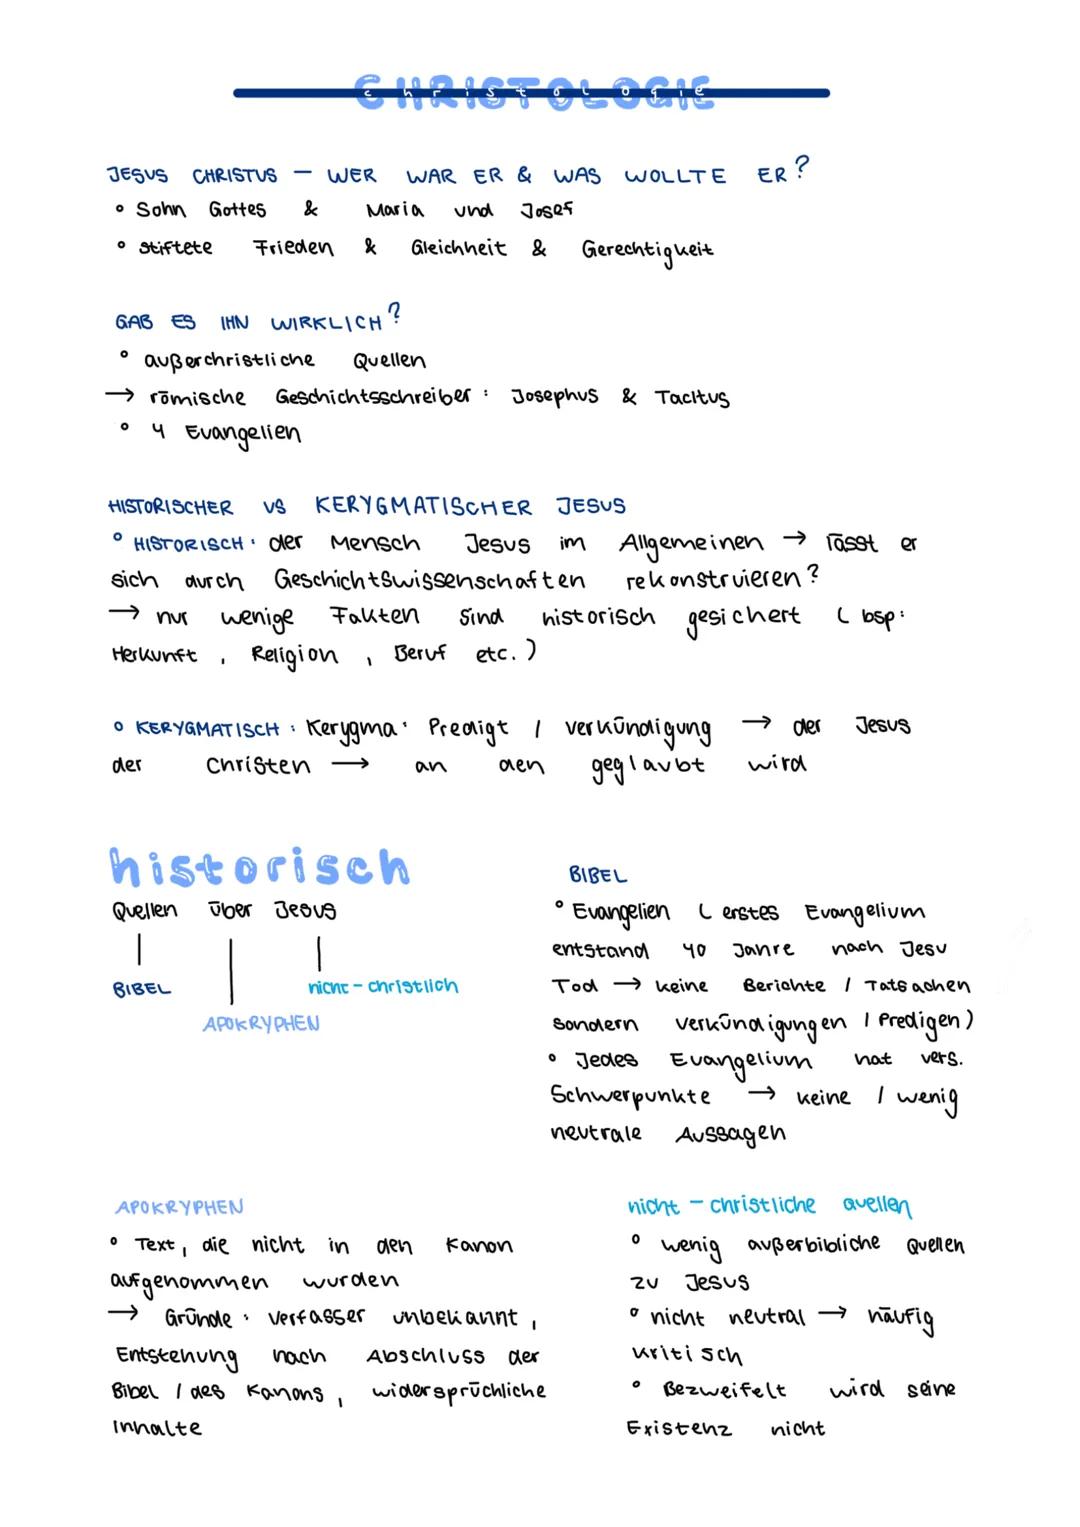 CHRISTOLOGIE
christologie
JESUS CHRISTUS – WER WAR ER & WAS WOLLTE ER?
° Sohn Gottes & Maria und Josef
° stiftete Frieden & Gleichheit & Gerechtigkeit
GAB ES IHN WIRKLICH?
° außerchristliche Quellen
→ römische Geschichtsschreiber: Josephus & Tacitus
° 4 Evangelien
HISTORISCHER VS KERYGMATISCHER JESUS
° HISTORISCH: der Mensch Jesus im Allgemeinen → lässt er
sich durch Geschichtswissenschaften rekonstruieren?
→ nur wenige Fakten sind historisch gesichert (bsp:
Herkunft, Religion, Beruf etc.)
° KERYGMATISCH: Kerygma: Predigt / verkündigung → der Jesus
der Christen → an den geglaubt wird
historisch
Quellen über Jesus
BIBEL
nicht-christlich
APOKRYPHEN
BIBEL
° Evangelien (erstes Evangelium
entstand 40 Jahre nach Jesu
Tod → keine Berichte / Tatsachen
sondern verkündigungen / Predigen)
° Jedes Evangelium hat vers.
Schwerpunkte → keine / wenig
neutrale Aussagen
APOKRYPHEN
° Text, die nicht in den Kanon
aufgenommen wurden
→ Gründe: Verfasser unbekannt,
Entstehung nach Abschluss der
Bibel / des Kanons, widersprüchliche
Inhalte
nicht-christliche Quellen
° wenig außerbibliche Quellen
zu Jesus
° nicht neutral → häufig
kritisch
° Bezweifelt wird seine
Existenz nicht